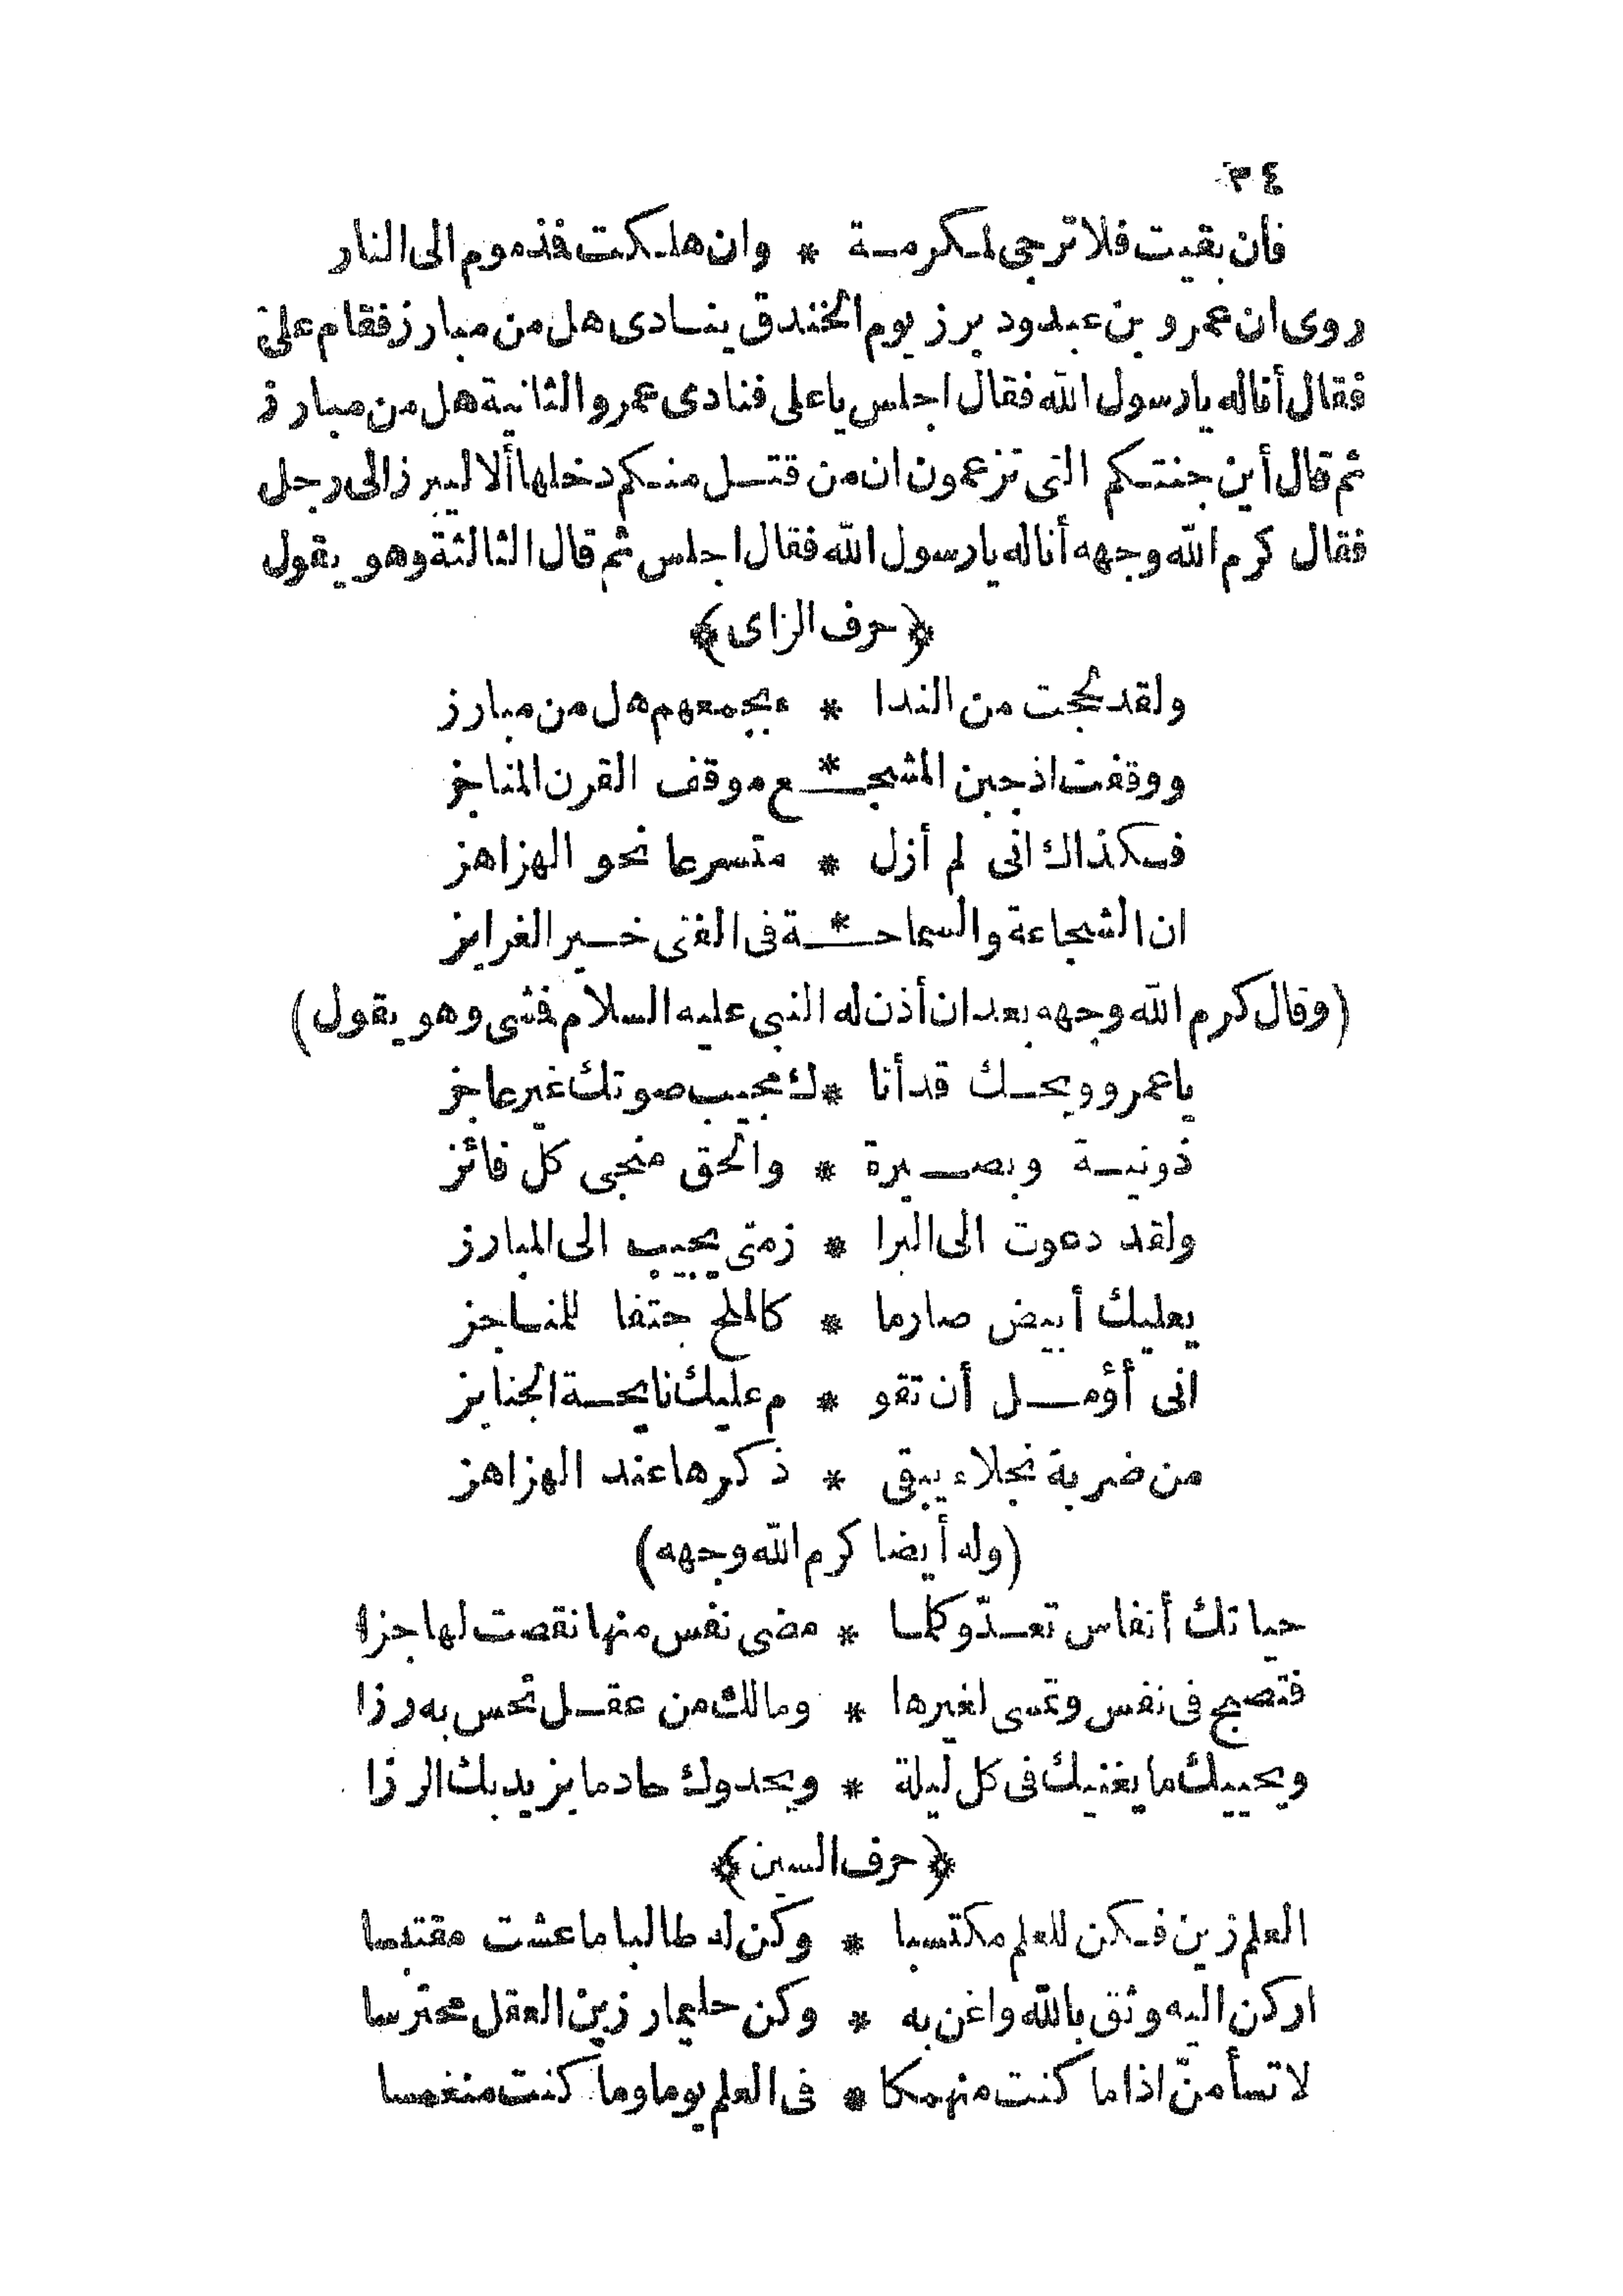 ٣٤
فان بقيت فلا ترجى لمكرمة * وان هلكت فذموم الى النار
روى ان عمرو بن عبدود برز يوم الخندق ينادى هل من مبارز فقام على
فقال أنا له يا رسول الله فقال اجلس يا على فنادى عمرو الثانية هل من مبارز
ثم قال أين جنتكم التى تزعمون ان من قتل منكم دخلها ألا ليبرز الى رجل
فقال كرم الله وجهه أنا له يا رسول الله فقال اجلس ثم قال الثالثة وهو يقول
﴿حرف الزاى﴾
ولقد بححت من الندا * ء بجمعهم هل من مبارز
ووقفت اذ جبن المشجـ * ـع موقف القرن المناجز
فكذاك انى لم أزل * متسرعا نحو الهزاهز
ان الشجاعة والسماحـ * ـة فى الفتى خير الغرايز
(وقال كرم الله وجهه بعد ان أذن له النبى عليه السلام فمشى وهو يقول)
يا عمرو ويحك قد أتا * ك مجيب صوتك غير عاجز
ذو نية وبصيرة * والحق منجى كل فائز
ولقد دعوت الى البرا * ز متى يجيب الى المبارز
يعليك أبيض صارما * كالملح حتفا للمناجز
انى أؤمل أن تقو * م عليك نايحة الجنايز
من ضربة نجلاء يبقى * ذكرها عند الهزاهز
(وله أيضا كرم الله وجهه)
حياتك أنفاس تعدّ وكلما * مضى نفس منها نقصت لها جزا
فتصبح فى نفس وتمسى لغيرها * ومالك من عقل تحس به رزا
ويحييك ما يغنيك فى كل ليلة * ويحدوك حاد ما يزيد بك الرزا
﴿حرف السين﴾
العلم زين فكن للعلم مكتسبا * وكن له طالبا ما عشت مقتبسا
اركن اليه وثق بالله واغن به * وكن حليما رزين العقل محترسا
لا تسأمنّ اذا ما كنت منهمكا * فى العلم يوما وما كنت منغمسا